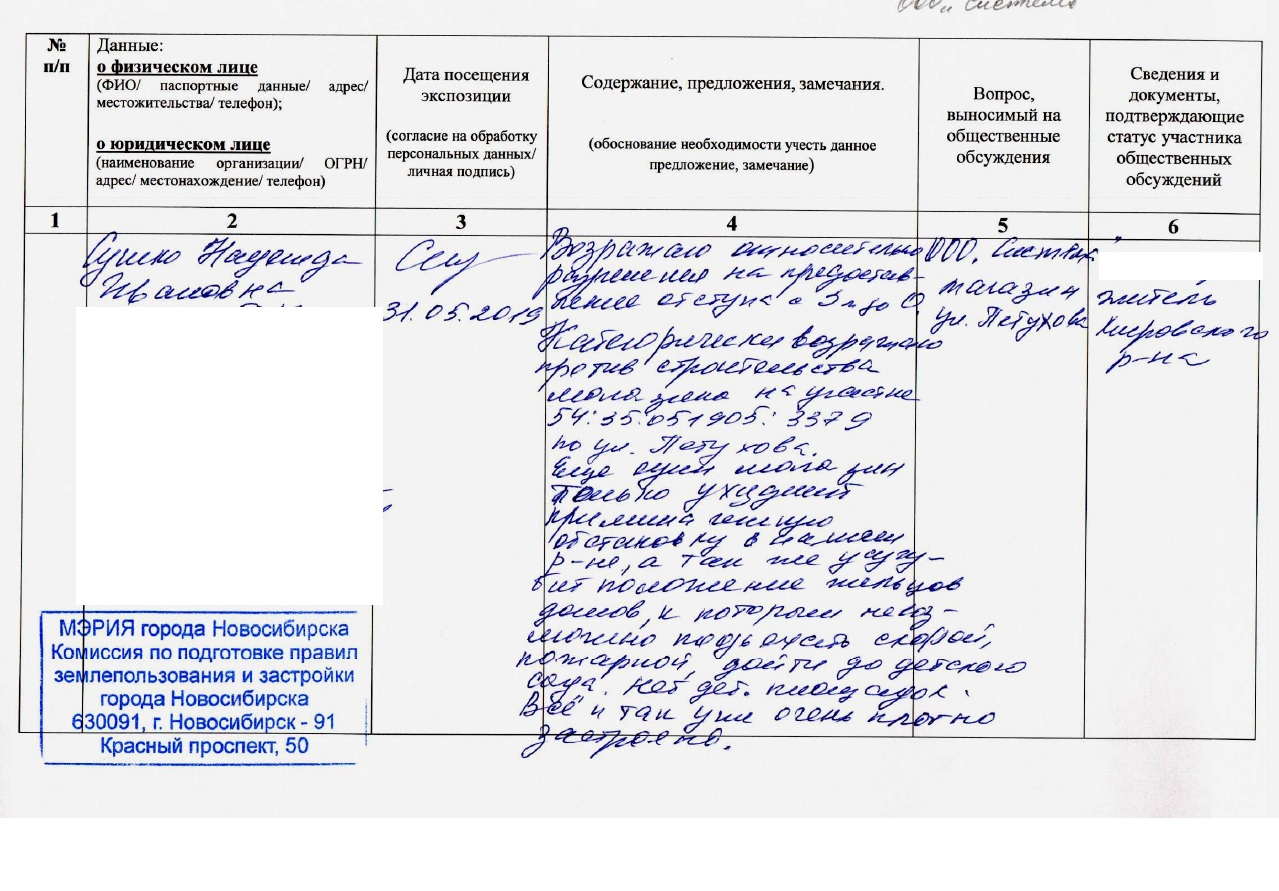 ООО „ Система
№
п/п
Данные:
о физическом лице
(ФИО/ паспортные данные/ адрес/
местожительства/ телефон);
о юридическом лице
(наименование организации/ ОГРН/
адрес/ местонахождение/ телефон)
Дата посещения
экспозиции
(согласие на обработку
персональных данных/
личная подпись)
Содержание, предложения, замечания.
(обоснование необходимости учесть данное
предложение, замечание)
Вопрос,
выносимый на
общественные
обсуждения
Сведения и
документы,
подтверждающие
статус участника
общественных
обсуждений
1
2
3
4
5
6
Сушко Надежда
Ивановна
31.05.2019
Возражаю относительно
разрешения на предостав-
ление отступа с 3 м до 0.
Категорически возражаю
против строительства
магазина на участке
54:35:051905:3379
по ул. Петухова.
Еще один магазин
только ухудшит
обстановку в нашем
р-не, а так же усугу-
бит положение жильцов
домов, к которым невоз-
можно подъехать скорой,
пожарной, дойти до детского
сада. Нет дет. площадок.
Всё и так уже очень плотно
застроено.
ООО „Система"
магазин
ул. Петухова
житель
Кировского
р-на
МЭРИЯ города Новосибирска
Комиссия по подготовке правил
землепользования и застройки
города Новосибирска
630091, г. Новосибирск - 91
Красный проспект, 50